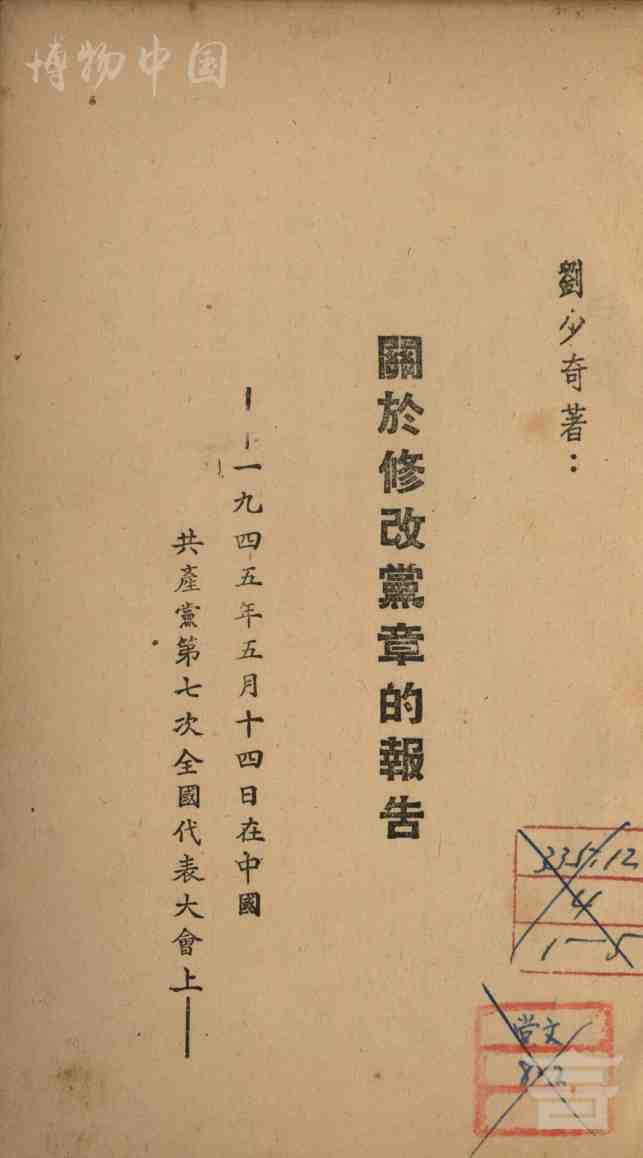 博物中国
劉少奇著：
關於修改黨章的報告
——一九四五年五月十四日在中國
共產黨第七次全國代表大會上——
335.12
4
1—5
党文